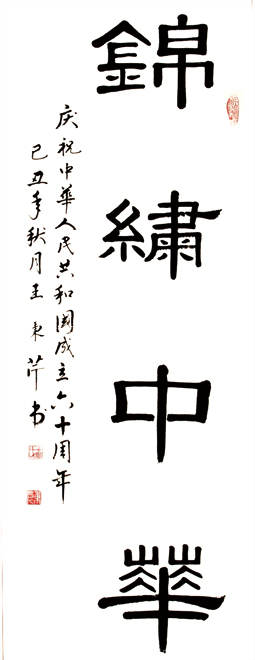 錦繡中華
庆祝中華人民共和國成立六十周年
己丑年秋月王東芹书